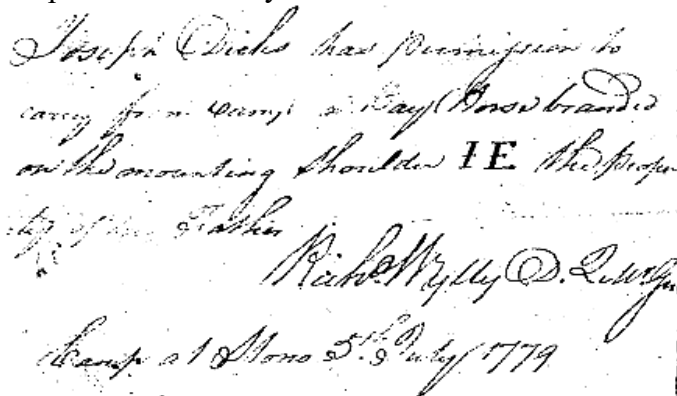 Joseph Dicks has permission to
carry from Camp a Bay Horse branded
on the mounting Shoulder IE the Proper
ty of his Father
Richd. Wylly D. Q. Mr. Gen
Camp at Stono 5th. July 1779